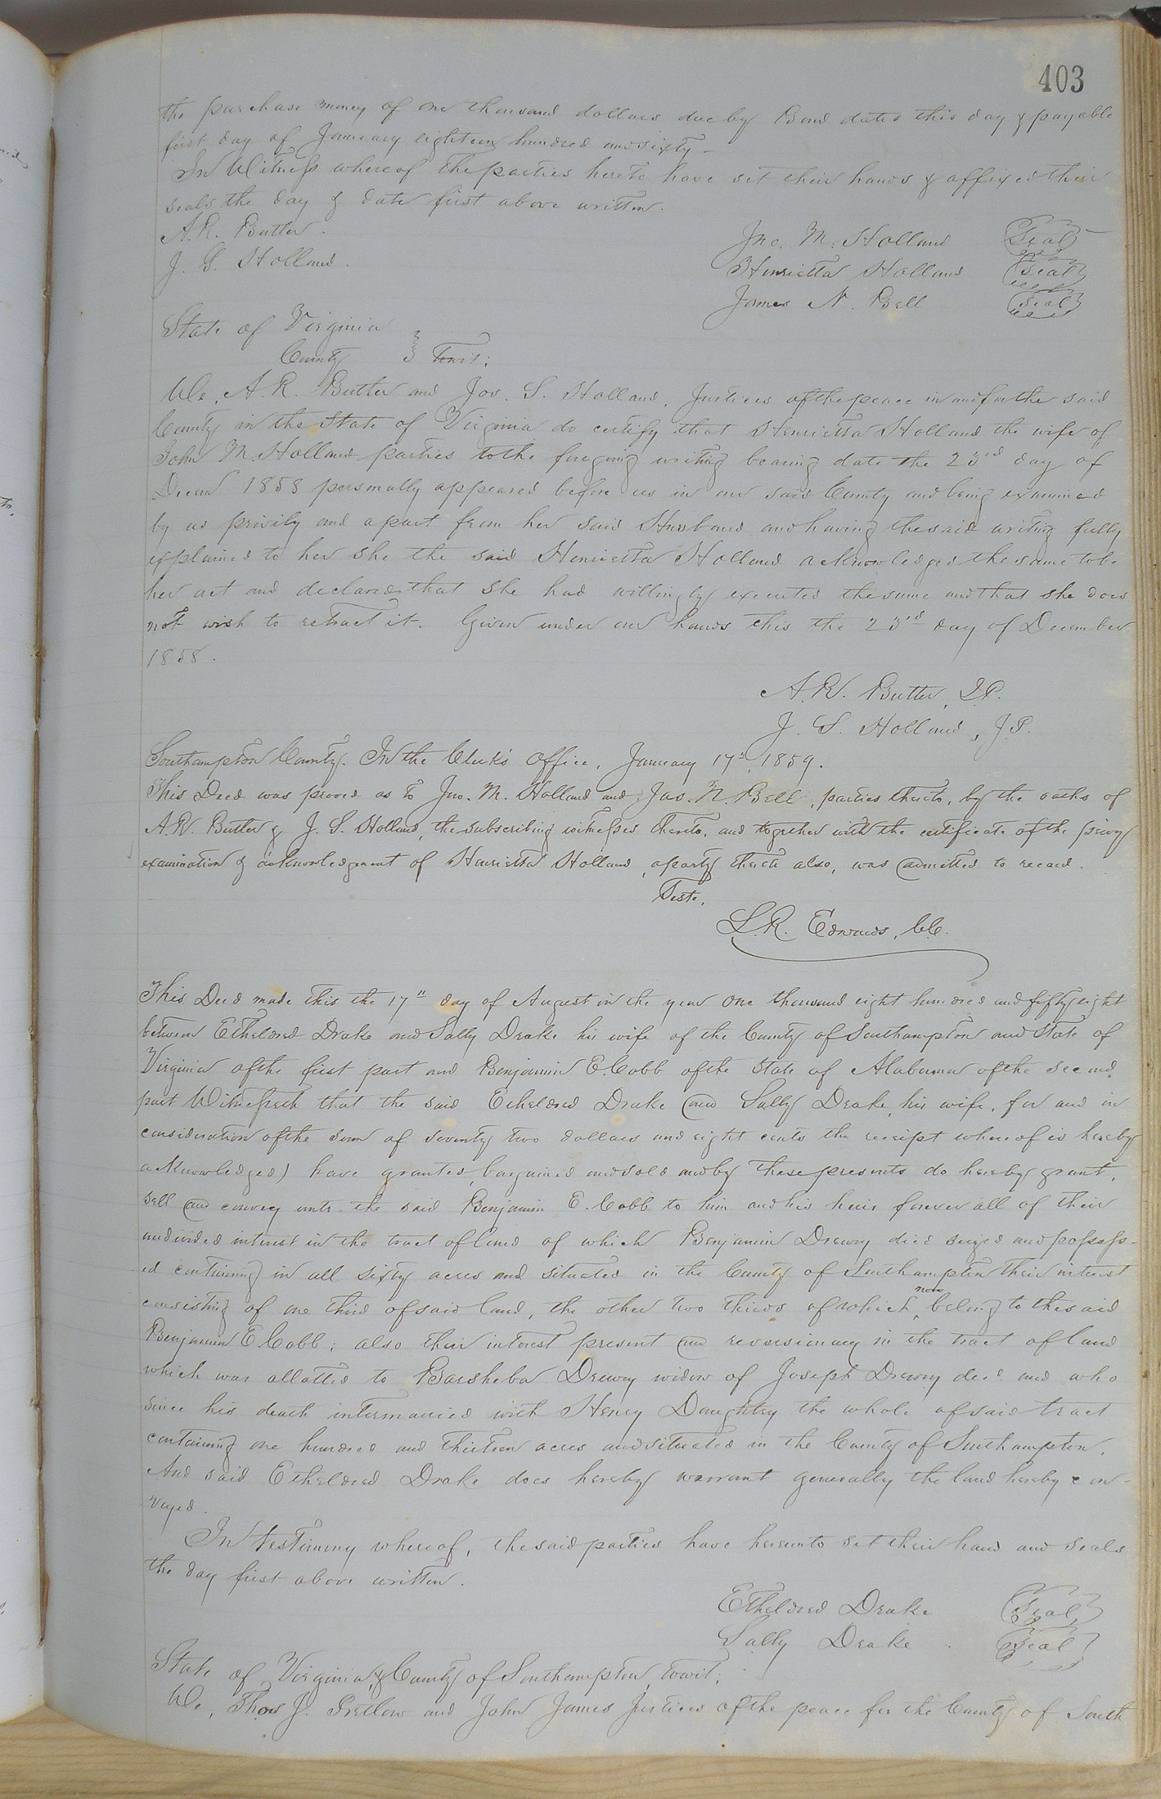 403
the purchase money of one thousand dollars due by Bond dated this day & payable
first day of January eighteen hundred and sixty—
In Witness whereof the parties hereto have set their hands & affixed their
seals the day & date first above written.
A. R. Butler.
J. S. Holland.
Jno. M. Holland (Seal)
Henrietta Holland (Seal)
James N. Bell (Seal)
State of Virginia
County } Towit:
We, A. R. Butler and Jos. S. Holland, Justices of the peace in and for the said
County in the State of Virginia do certify that Henrietta Holland the wife of
John M. Holland parties to the foregoing writing bearing date the 23rd day of
Decem 1858 personally appeared before us in our said County and being examined
by us privily and apart from her said Husband and having the said writing fully
explained to her she the said Henrietta Holland acknowledged the same to be
her act and declared that she had willingly executed the same and that she does
not wish to retract it. Given under our hands this the 23rd day of December
1858.
A. R. Butler, J.P.
J. S. Holland, J.P.
Southampton County. In the Clerk's Office, January 17th, 1859.
This Deed was proved as to Jno. M. Holland and Jas. N. Bell, parties thereto, by the oaths of
A. R. Butler & J. S. Holland, the subscribing witnesses thereto, and together with the certificate of the privy
examination & acknowledgment of Henrietta Holland, a party thereto also, was admitted to record.
Teste,
L. R. Edwards, C.C.
This Deed made this the 17th day of August in the year One thousand eight hundred and fifty eight
between Etheldred Drake and Sally Drake his wife of the County of Southampton and State of
Virginia of the first part and Benjamin E. Cobb of the State of Alabama of the second
part Witnesseth that the said Etheldred Drake and Sally Drake, his wife, for and in
consideration of the sum of seventy two dollars and eight cents the receipt whereof is hereby
acknowledged) have granted, bargained and sold and by these presents do hereby grant,
sell and convey unto the said Benjamin E. Cobb to him and his heirs forever all of their
undivided interest in the tract of land of which Benjamin Drewry died seized and possess-
ed containing in all sixty acres and situated in the County of Southampton their interest
consisting of one third of said land, the other two thirds of which now belong to the said
Benjamin E. Cobb; also their interest present and reversionary in the tract of land
which was allotted to Barsheba Drewry widow of Joseph Drewry decd. and who
since his death intermarried with Henry Daughtry the whole of said tract
containing one hundred and thirteen acres and situated in the County of Southampton.
And said Etheldred Drake does hereby warrant generally the land hereby con-
veyed.
In testimony whereof, the said parties have hereunto set their hand and seals
the day first above written.
Etheldred Drake (Seal)
Sally Drake. (Seal)
State of Virginia, & County of Southampton, towit:
We, Thos J. Pretlow and John James Justices of the peace for the County of South